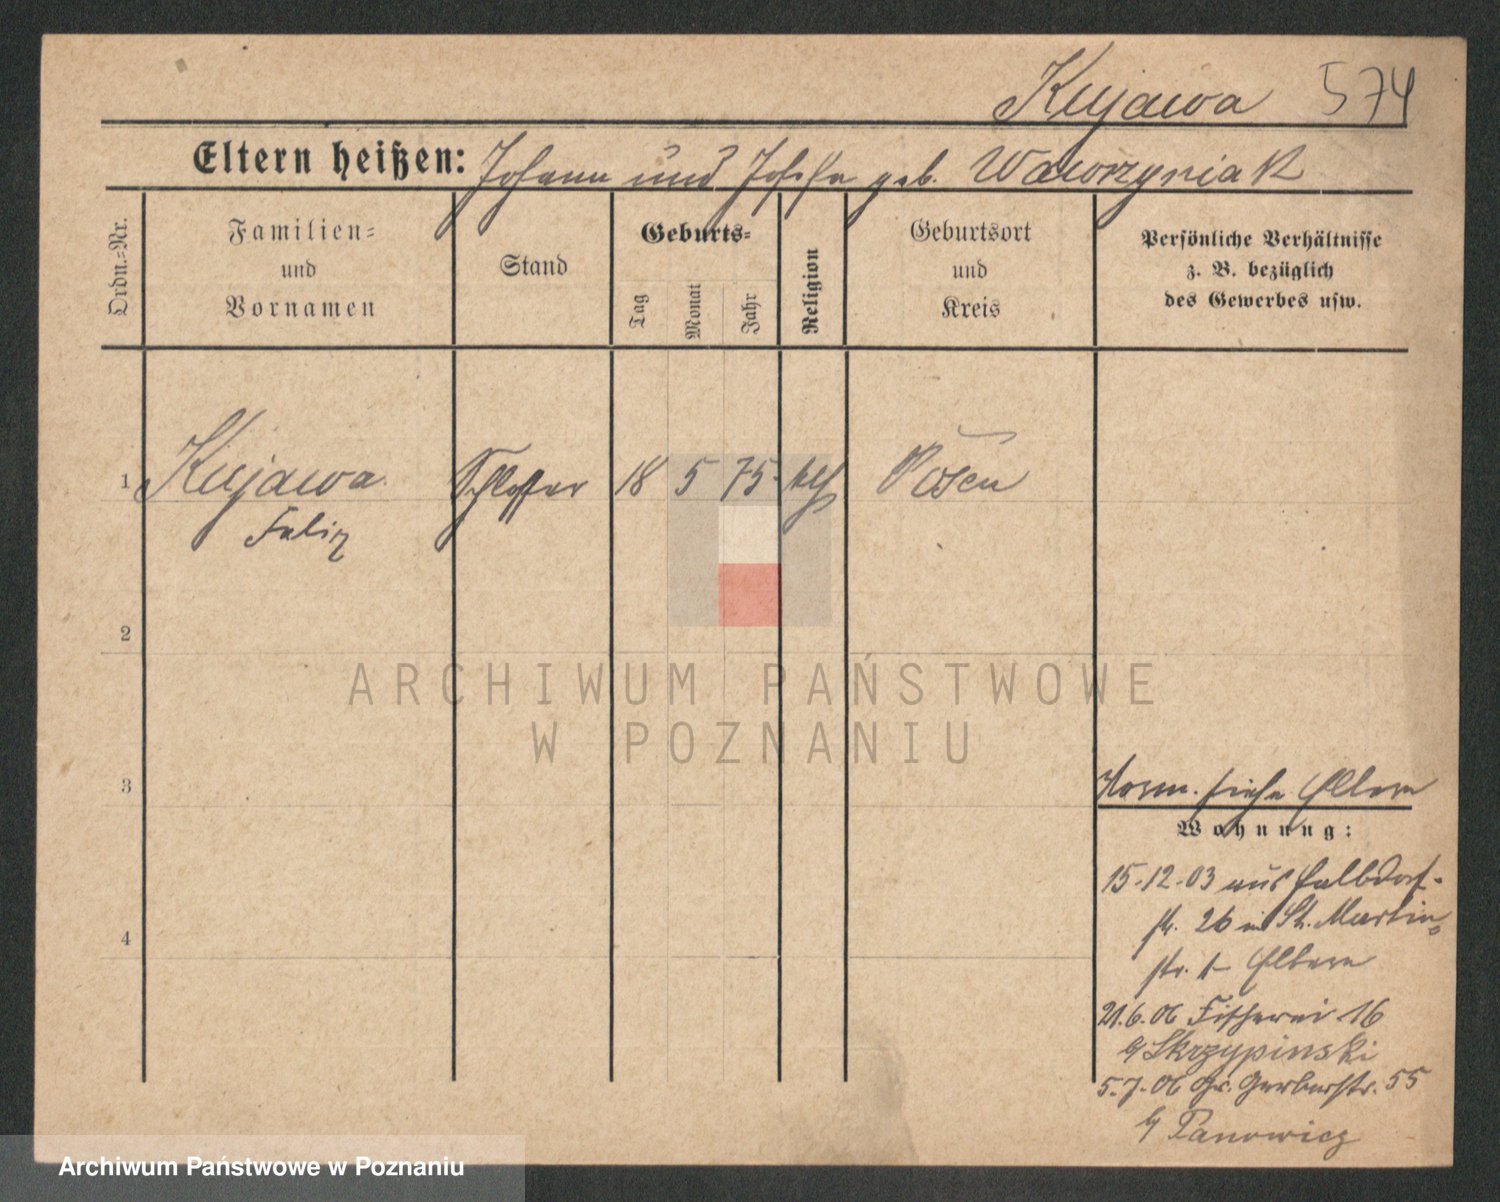 Kujawa 574
Eltern heißen: Johann und Josefa geb. Wawrzyniak
Ordn.-Nr.
Familien-
und
Vornamen
Stand
Geburts-
Tag
Monat
Jahr
Religion
Geburtsort
und
Kreis
Persönliche Verhältnisse
z. B. bezüglich
des Gewerbes usw.
1 Kujawa Schlosser 18 5 75. kth Posen
Felix
2
ARCHIWUM PAŃSTWOWE
W POZNANIU
3
siehe Eltern
Wohnung:
15-12-03 aus Halbdorf-
str. 26 n St. Martin-
str. Eltern
4
21.6.06 Fischerei 16
b/ Skrzypinski
5.7.06 Gr. Gerberstr. 55
b/ Panowicz
Archiwum Państwowe w Poznaniu